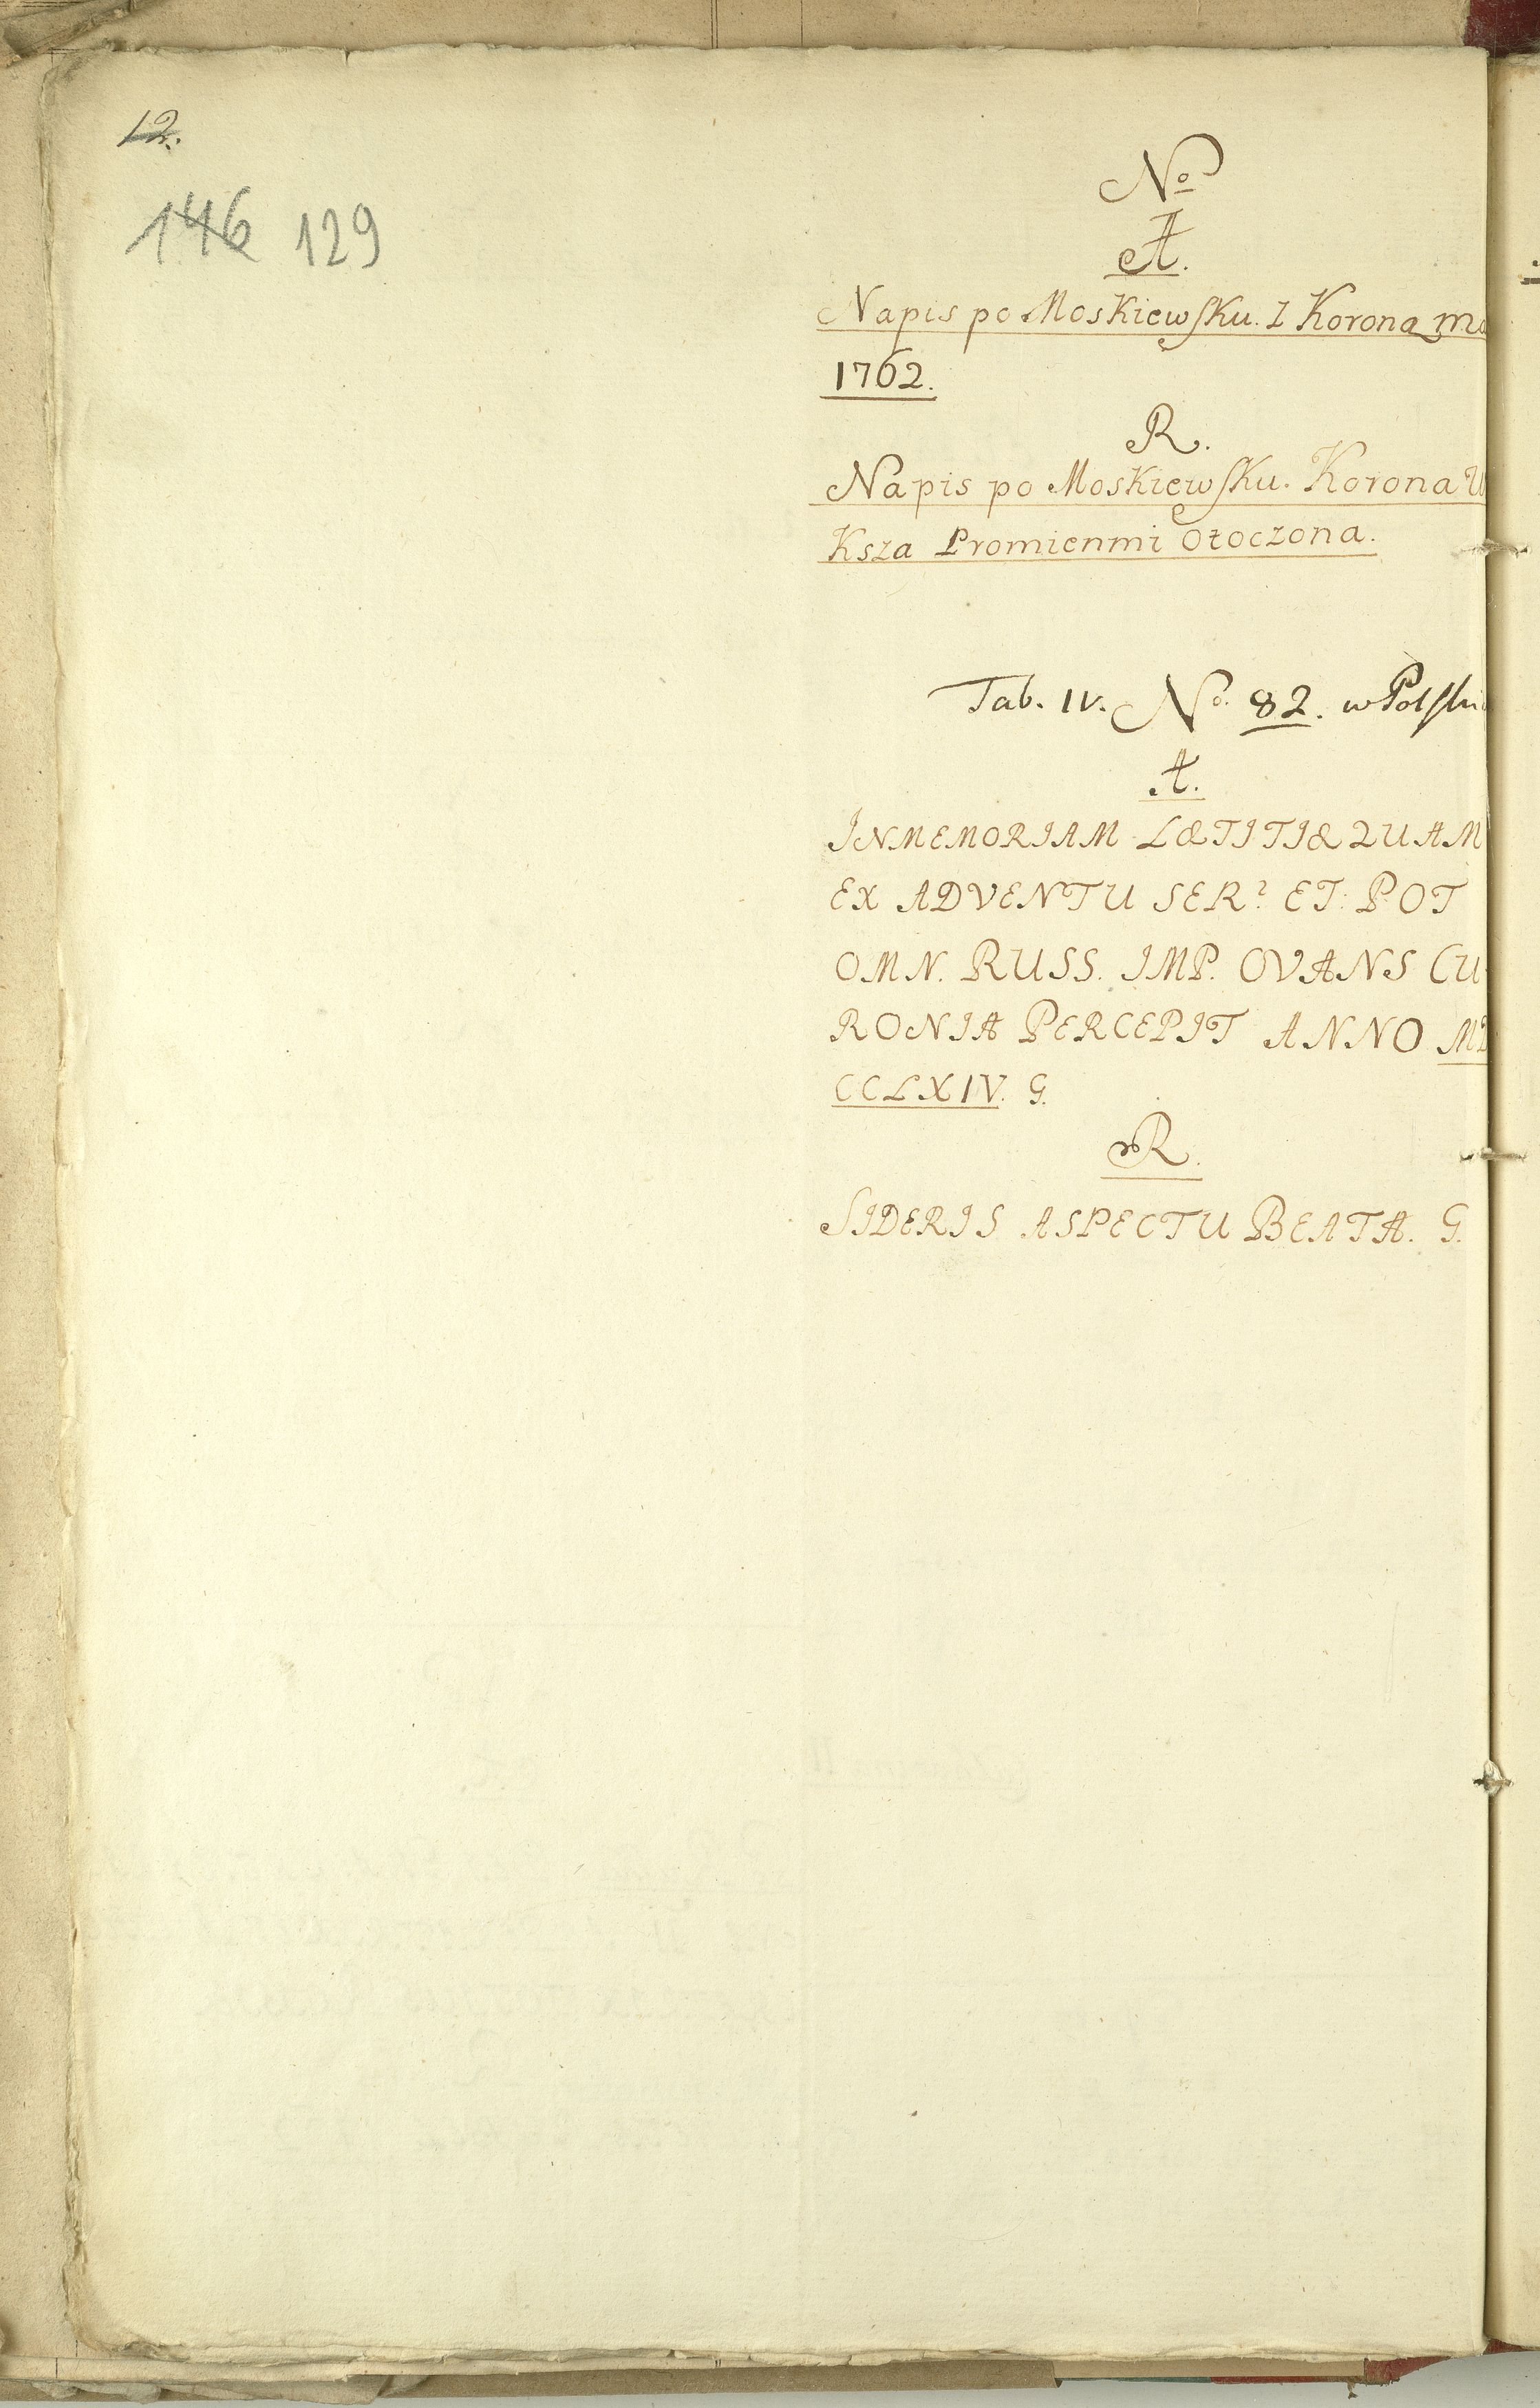 12.
146 129
No
A.
Napis po Moskiewſku. I Korona
1762.
R.
Napis po Moskiewſku. Korona
Ksza Promienmi Otoczona.
Tab. IV. No. 82. w
A.
INMEMORIAM LÆTITIÆ QUAM
EX ADVENTU SER? ET: POT
OMN. RUSS. IMP. OVANS CU-
RONIA PERCEPIT ANNO MD
CCLXIV. G.
R.
SIDERIS ASPECTU BEATA. G.